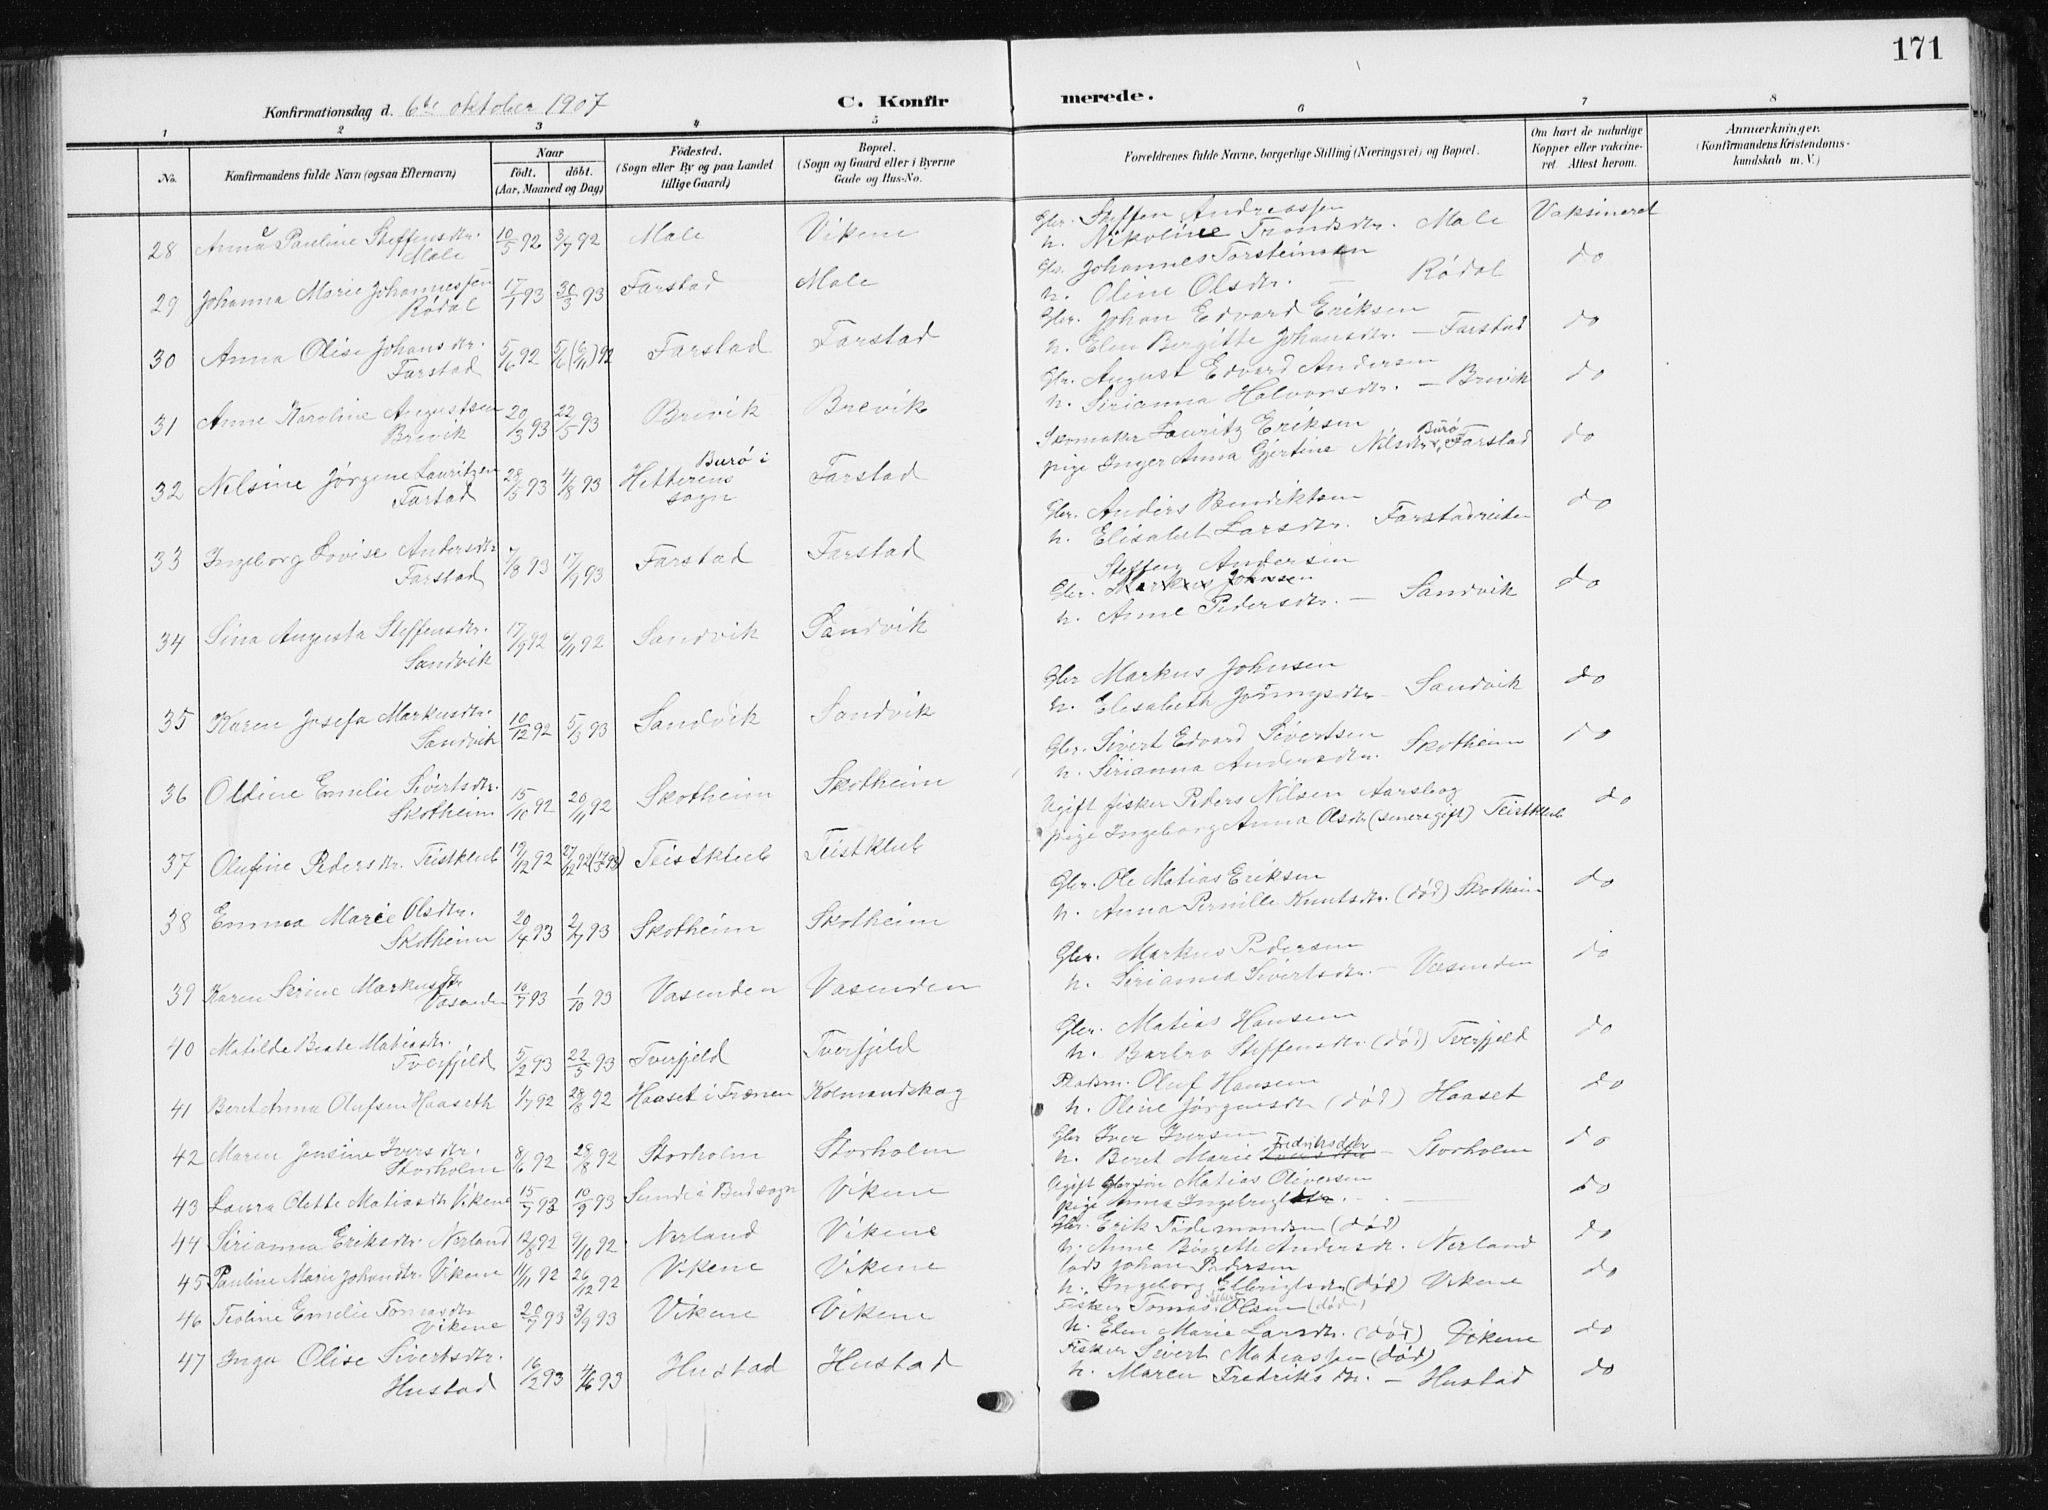 171
Konfirmationsdag d. 6te oktober 1907
C. Konfirmerede.
1 2 3 4 5 6 7 8
No.
Konfirmandens fulde Navn (ogsaa Efternavn)
Naar
födt. döbt.
(Aar, Maaned og Dag)
Födested.
(Sogn eller By og paa Landet
tillige Gaard)
Bopæl.
(Sogn og Gaard eller i Byerne
Gade og Hus-No.
Forældrenes fulde Navne, borgerlige Stilling (Næringsvei) og Bopæl.
Om havt de naturlige
Kopper eller vakcine-
ret. Attest herom.
Anmærkninger.
(Konfirmandens Kristendoms-
kundskab m. V.)
28 Anna Pauline Steffensdtr. Male 10/5 92 3/7 92 Male Vikene
Gbr. Steffen Andreassen
h. Nikoline Trondsdtr. Male Vaksineret
29 Johanna Marie Johannessen Rödal 17/1 93 30/3 93 Farstad Male
Gbr. Johannes Torsteinsen
h. Oline Olsdtr. — Rödal do
30 Anna Olise Johansdtr. Farstad 5/6 92 5/6 (6/11) 92 Farstad Farstad
Gbr. Johan Edvard Eriksen
h. Elen Bergitte Johansdtr. — Farstad do
31 Anne Karoline Augustsen Brevik 20/3 93 22/5 93 Brevik Brevik
Gbr. August Edvard Andersen
h. Sirianna Halvorsdtr. — Brevik do
32 Nilsine Jörgine Lauritzen Farstad 28/5 93 4/8 93 Burö i Hitterens sogn Farstad
Skomaker Lauritz Eriksen
pige Inger Anna Gjertine Nilsdtr. Burö Farstad do
33 Ingeborg Lovise Andersdtr Farstad 7/8 93 17/9 93 Farstad Farstad
Gbr. Anders Bendiktsen
h. Elisabet Larsdtr. Farstadreiten do
34 Sina Augusta Steffensdtr. Sandvik 17/9 92 6/11 92 Sandvik Sandvik
Steffen Andersen
Gbr. Markus Johnsen
h. Anne Pedersdtr. — Sandvik do
35 Karen Josefa Markusdtr. Sandvik 10/12 92 5/3 93 Sandvik Sandvik
Gbr Markus Johnsen
h. Elisabeth — Sandvik do
36 Oldine Emelie Sivertsdtr. Skotheim 15/10 92 20/11 92 Skotheim Skotheim
Gbr. Sivert Edvard Sivertsen
h. Sirianna Andersdtr. Skotheim do
37 Olufine Pedersdtr. Teistklub 19/12 92 27/12 92 Teistklub Teistklub
Ugift fisker Peders Nilsen Aarsbog
pige Ingeborg Anna Olsdtr (senere gift) Teistklub do
38 Emma Marie Olsdtr. Skotheim 20/4 93 2/7 93 Skotheim Skotheim
Gbr. Ole Matias Eriksen
h. Anna Pernille Knutsdtr. (död) Skotheim do
39 Karen Serine Markusdtr Vasenden 16/7 93 1/10 93 Vasenden Vasenden
Gbr. Markus Pedersen
h. Sirianna Sivertsdtr. — Vasenden do
40 Matilde Beate Matiasdtr. Tverfjeld 5/2 93 22/5 93 Tverfjeld Tverfjeld
Gbr. Matias Hansen
h. Barbro Steffensdtr. (död) Tverfjeld do
41 Beret Anna Olufsen Haaseth 1/7 92 28/8 92 Haaset i Frænen Kolmandskog
Pladsm. Oluf Hansen
h. Oline Jörgensdtr (död) Haaset do
42 Maren Jensine Iversdtr. Storholm 8/6 92 28/8 92 Storholm Storholm
Gbr Iver Iversen
h. Beret Marie Fredriksdtr — Storholm do
43 Laura Olette Matiasdtr Vikene 15/7 93 10/9 93 Sunde i Bud sogn Vikene
Ugift gbrsön Matias Oliversen
pige Anna — do
44 Sirianna Eriksdtr. Nerland 12/8 92 9/10 92 Nerland Vikene
Gbr. Erik Tidemandsen (död)
h. Anne Börgette Andersdtr. Nerland do
45 Pauline Marie Johansdtr. Vikene 11/11 92 26/12 92 Vikene Vikene
Johan Pedersen
h. Ingeborg Ellingsdtr (död) Vikene do
46 Teoline Emelie Tomasdtr Vikene 20/7 93 3/9 93 Vikene Vikene
Fisker Tomas Olsen (död)
h. Elen Marie Larsdtr. (död) Vikene do
47 Inga Olise Sivertsdtr. Hustad 16/2 93 4/6 93 Hustad Hustad
Fisker Sivert Matiassen (död)
h. Maren Fredriksdtr. — Hustad do